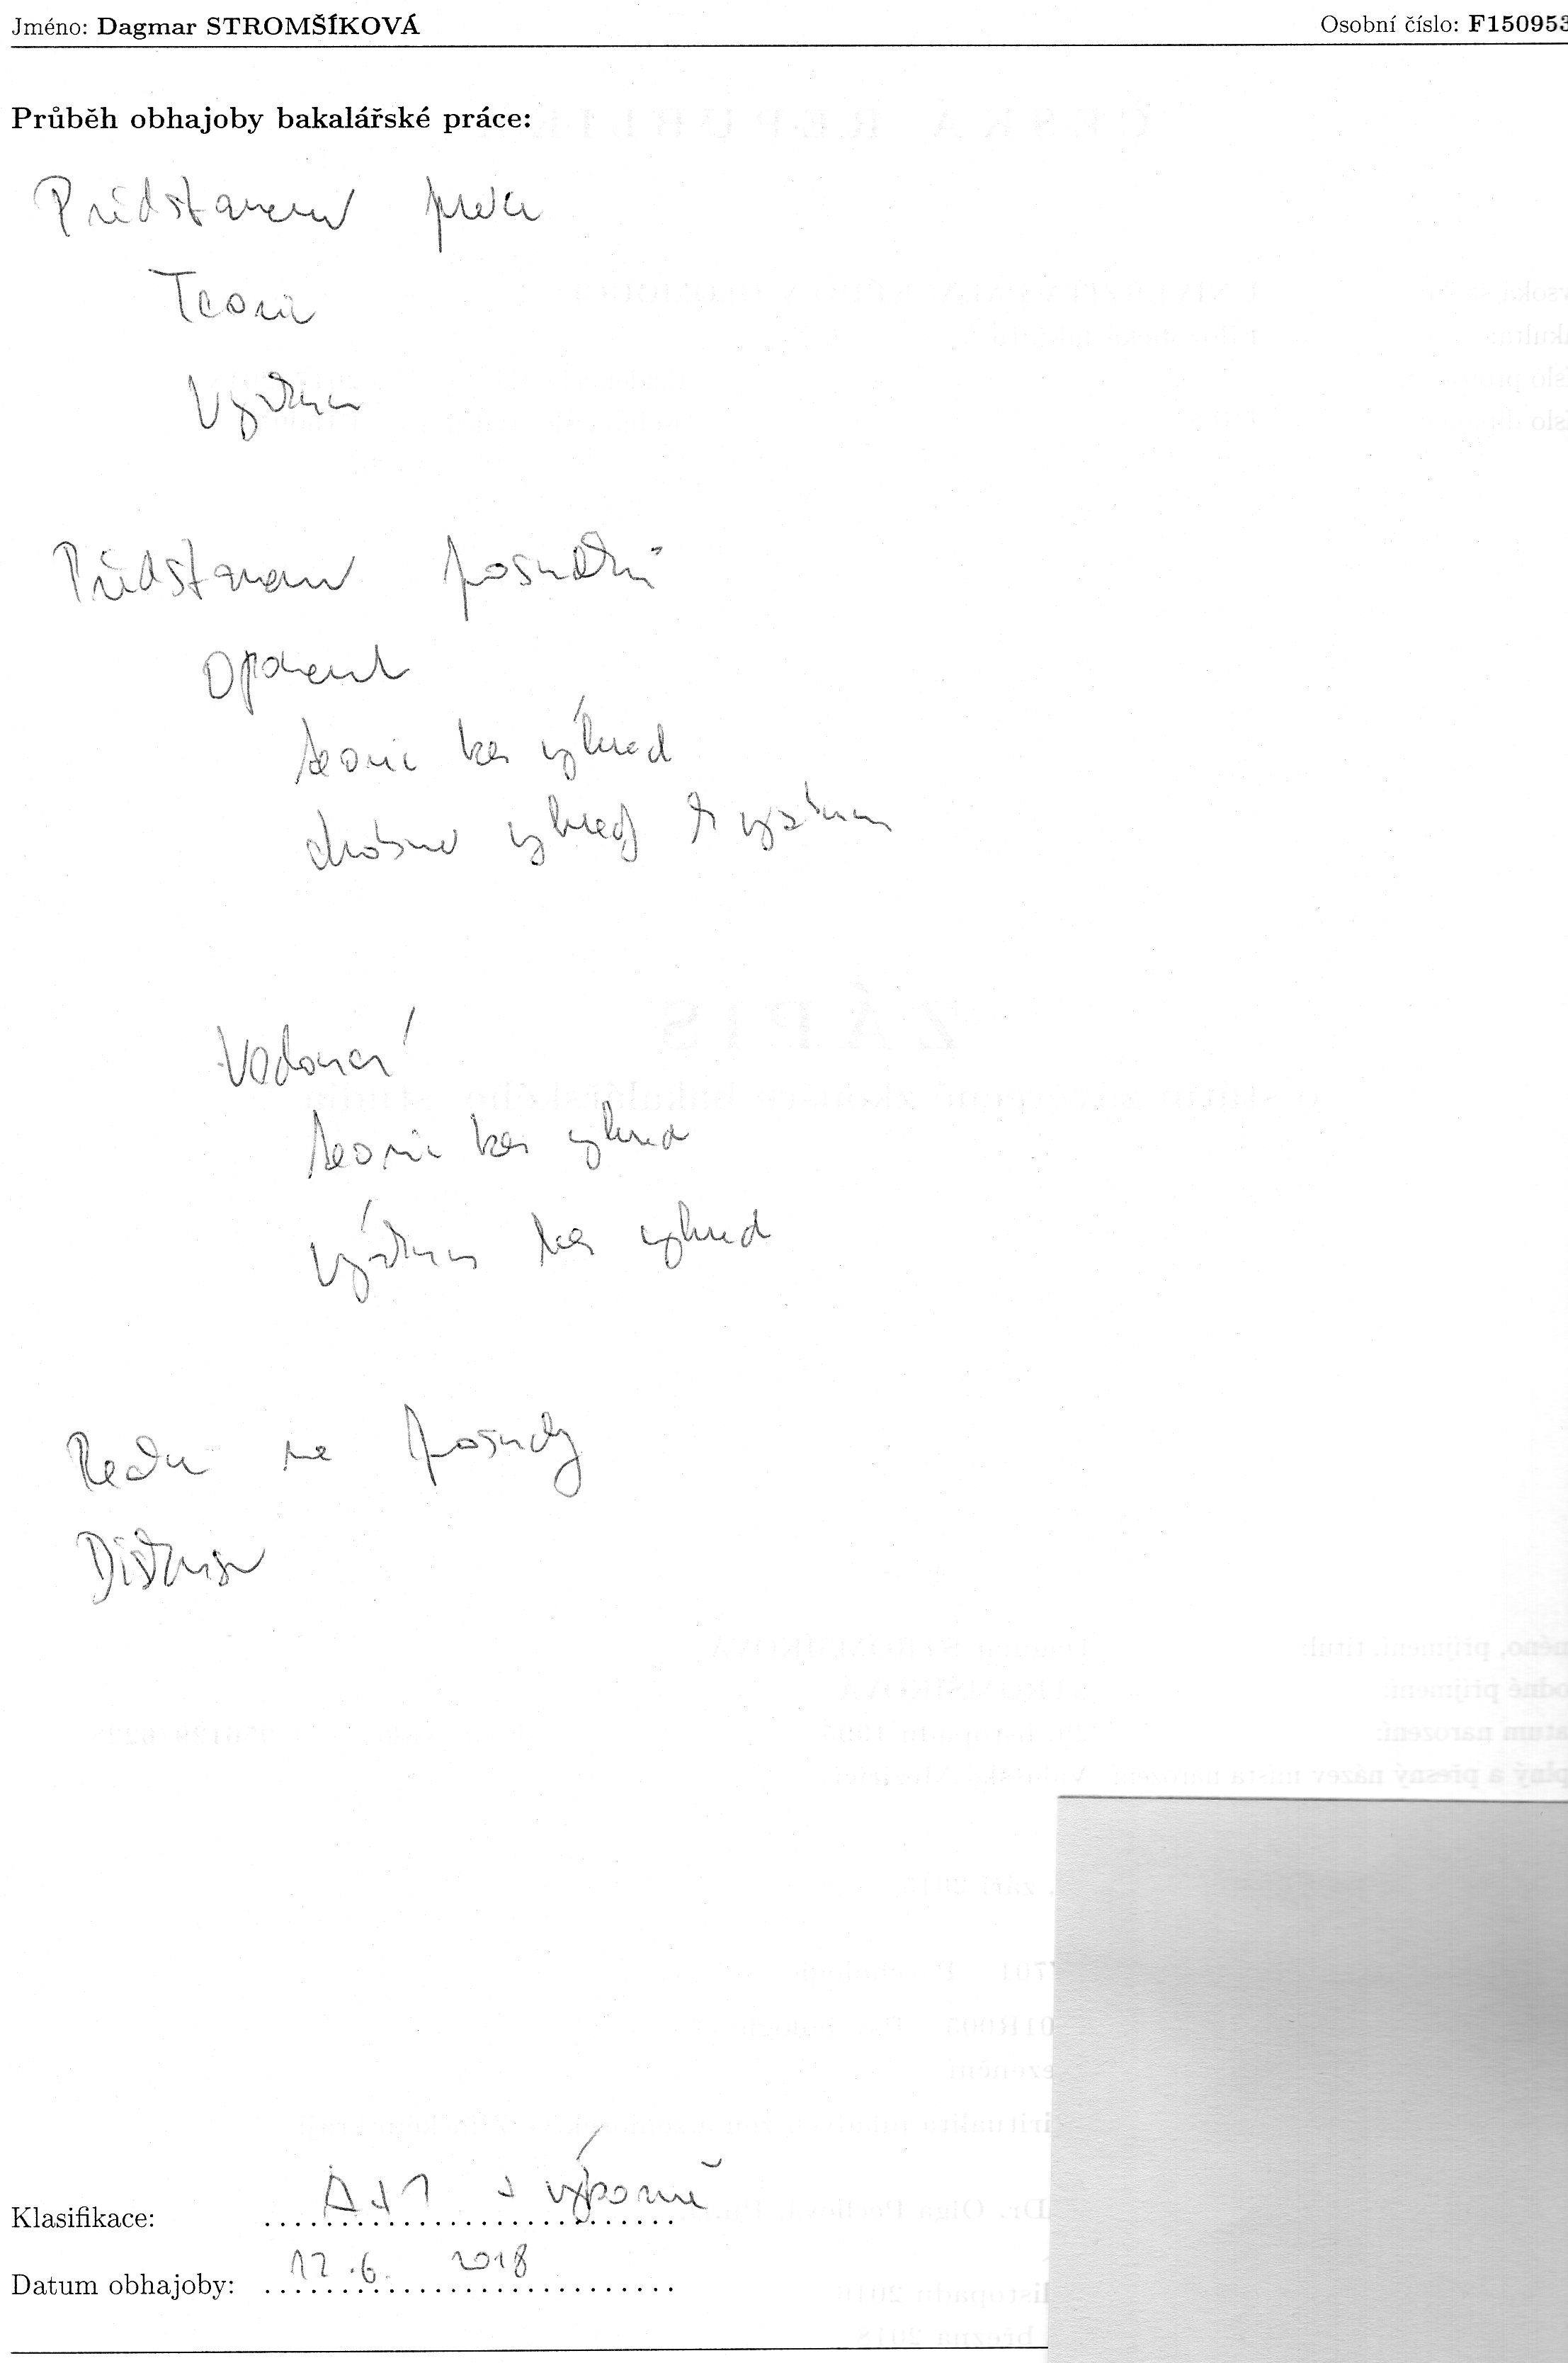 Jméno: Dagmar STROMŠÍKOVÁ Osobní číslo: F150953
Průběh obhajoby bakalářské práce:
Představení práce
Teorie
Výzkum
Představení posudků
Oponent
teorie bez výhrad
drobné výhrady k výzkumu
Vedoucí
teorie bez výhrad
výzkum bez výhrad
Reakce na posudky
Diskuse
Klasifikace: A 1 výborně
Datum obhajoby: 12.6. 2018